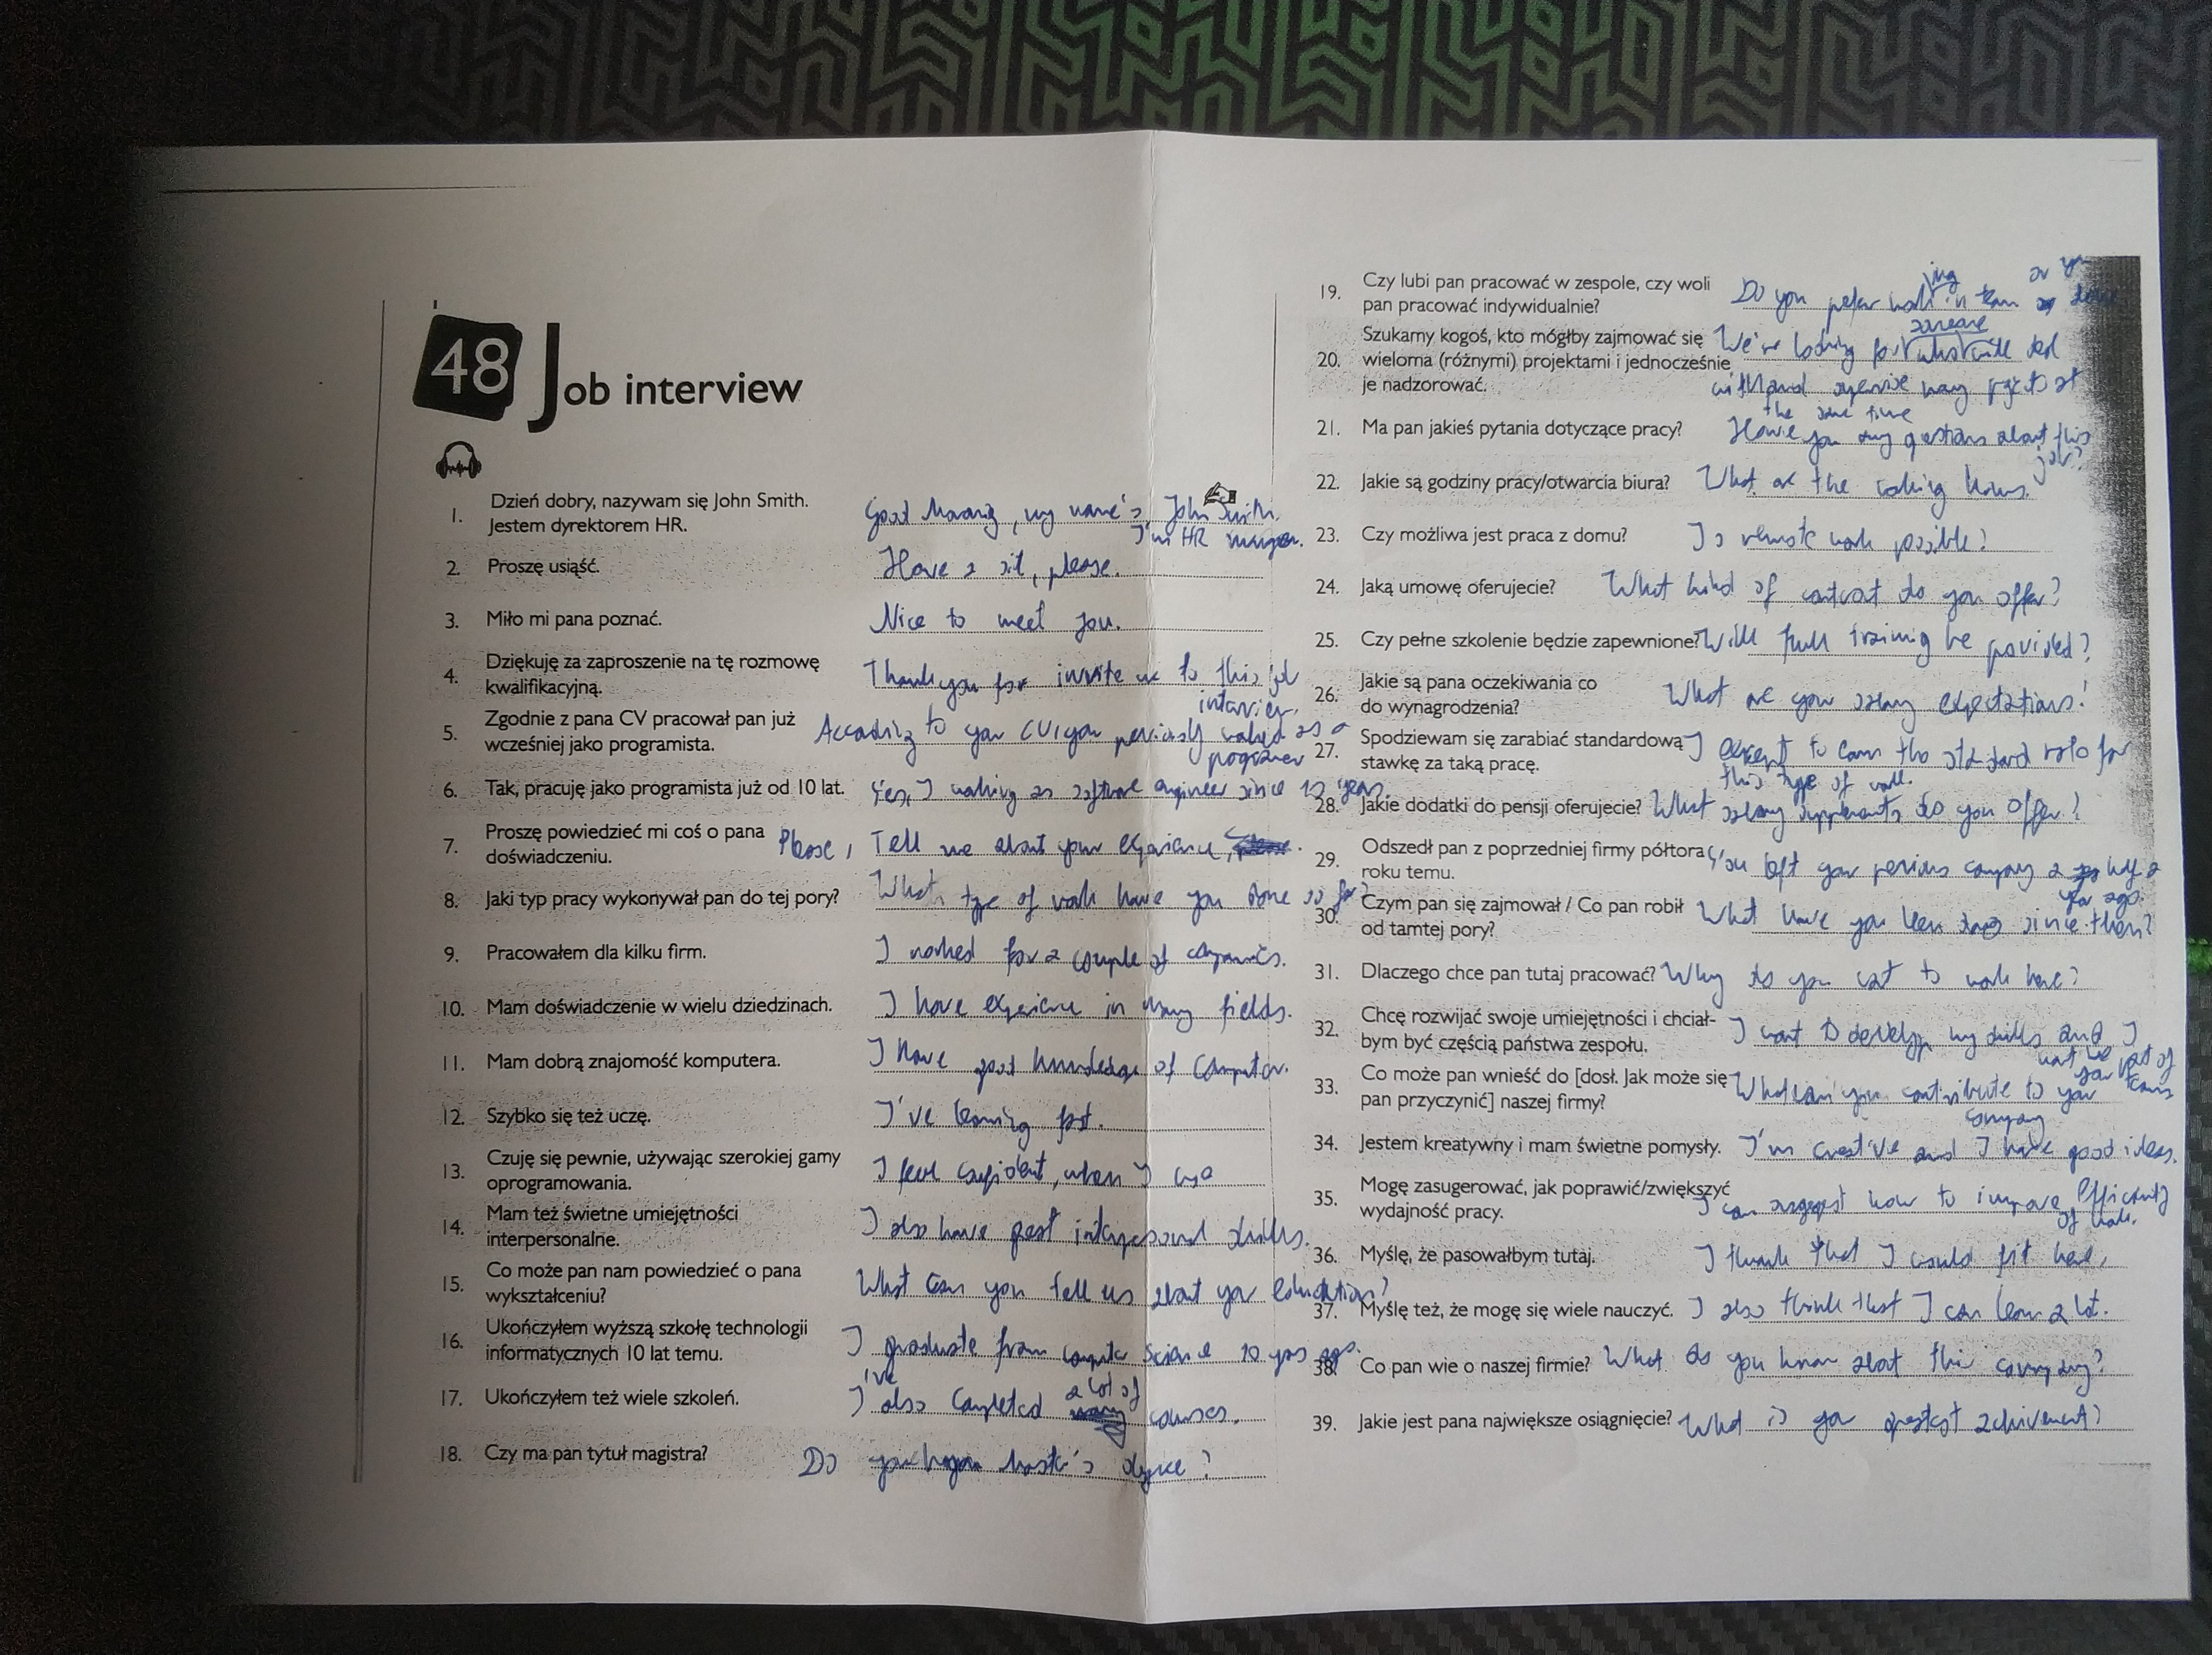 48 Job interview
1. Dzień dobry, nazywam się John Smith.
Jestem dyrektorem HR.
Good Morning, my name's John Smith.
I'm HR manager.
2. Proszę usiąść.
Have a sit, please.
3. Miło mi pana poznać.
Nice to meet you.
4. Dziękuję za zaproszenie na tę rozmowę
kwalifikacyjną.
Thank you for invite me to this job
interview.
5. Zgodnie z pana CV pracował pan już
wcześniej jako programista.
According to your CV, you previously worked as a
6. Tak, pracuję jako programista już od 10 lat.
Yes, I working as software engineer since 10 years.
7. Proszę powiedzieć mi coś o pana
doświadczeniu.
Please, Tell me about your experience
8. Jaki typ pracy wykonywał pan do tej pory?
What type of work have you done so far?
9. Pracowałem dla kilku firm.
I worked for a couple of companies.
10. Mam doświadczenie w wielu dziedzinach.
I have experience in many fields.
11. Mam dobrą znajomość komputera.
I have good knowledge of computer.
12. Szybko się też uczę.
I've learning fast.
13. Czuję się pewnie, używając szerokiej gamy
oprogramowania.
I feel confident, when I use
14. Mam też świetne umiejętności
interpersonalne.
I also have great interpersonal skills.
15. Co może pan nam powiedzieć o pana
wykształceniu?
What can you tell us about your education?
16. Ukończyłem wyższą szkołę technologii
informatycznych 10 lat temu.
I graduate from computer science 10 years ago.
17. Ukończyłem też wiele szkoleń.
I've also completed a lot of courses.
18. Czy ma pan tytuł magistra?
Do you master's degree?
19. Czy lubi pan pracować w zespole, czy woli
pan pracować indywidualnie?
Do you prefer working in team or
20. Szukamy kogoś, kto mógłby zajmować się
wieloma (różnymi) projektami i jednocześnie
je nadzorować.
We're looking for someone who will deal
with and supervise many projects at
the same time
21. Ma pan jakieś pytania dotyczące pracy?
Have you any questions about this
job?
22. Jakie są godziny pracy/otwarcia biura?
What are the working hours.
23. Czy możliwa jest praca z domu?
Is remote work possible?
24. Jaką umowę oferujecie?
What kind of contract do you offer?
25. Czy pełne szkolenie będzie zapewnione?
Will full training be provided?
26. Jakie są pana oczekiwania co
do wynagrodzenia?
What are your salary expectations?
27. Spodziewam się zarabiać standardową
stawkę za taką pracę.
I expect to earn the standard rate for
this type of work.
28. Jakie dodatki do pensji oferujecie?
What salary supplements do you offer?
29. Odszedł pan z poprzedniej firmy półtora
roku temu.
You left your previous company a half a
year ago.
30. Czym pan się zajmował / Co pan robił
od tamtej pory?
What have you been doing since then?
31. Dlaczego chce pan tutaj pracować?
Why do you want to work here?
32. Chcę rozwijać swoje umiejętności i chciał-
bym być częścią państwa zespołu.
I want to develop my skills and I
want be part of
your team
33. Co może pan wnieść do [dosł. Jak może się
pan przyczynić] naszej firmy?
What can you contribute to your
company
34. Jestem kreatywny i mam świetne pomysły.
I'm creative and I have good ideas.
35. Mogę zasugerować, jak poprawić/zwiększyć
wydajność pracy.
I can suggest how to improve efficiently
of work.
36. Myślę, że pasowałbym tutaj.
I think that I could fit here,
37. Myślę też, że mogę się wiele nauczyć.
I also think that I can learn a lot.
38. Co pan wie o naszej firmie?
What do you know about this company?
39. Jakie jest pana największe osiągnięcie?
What is your greatest achivement?